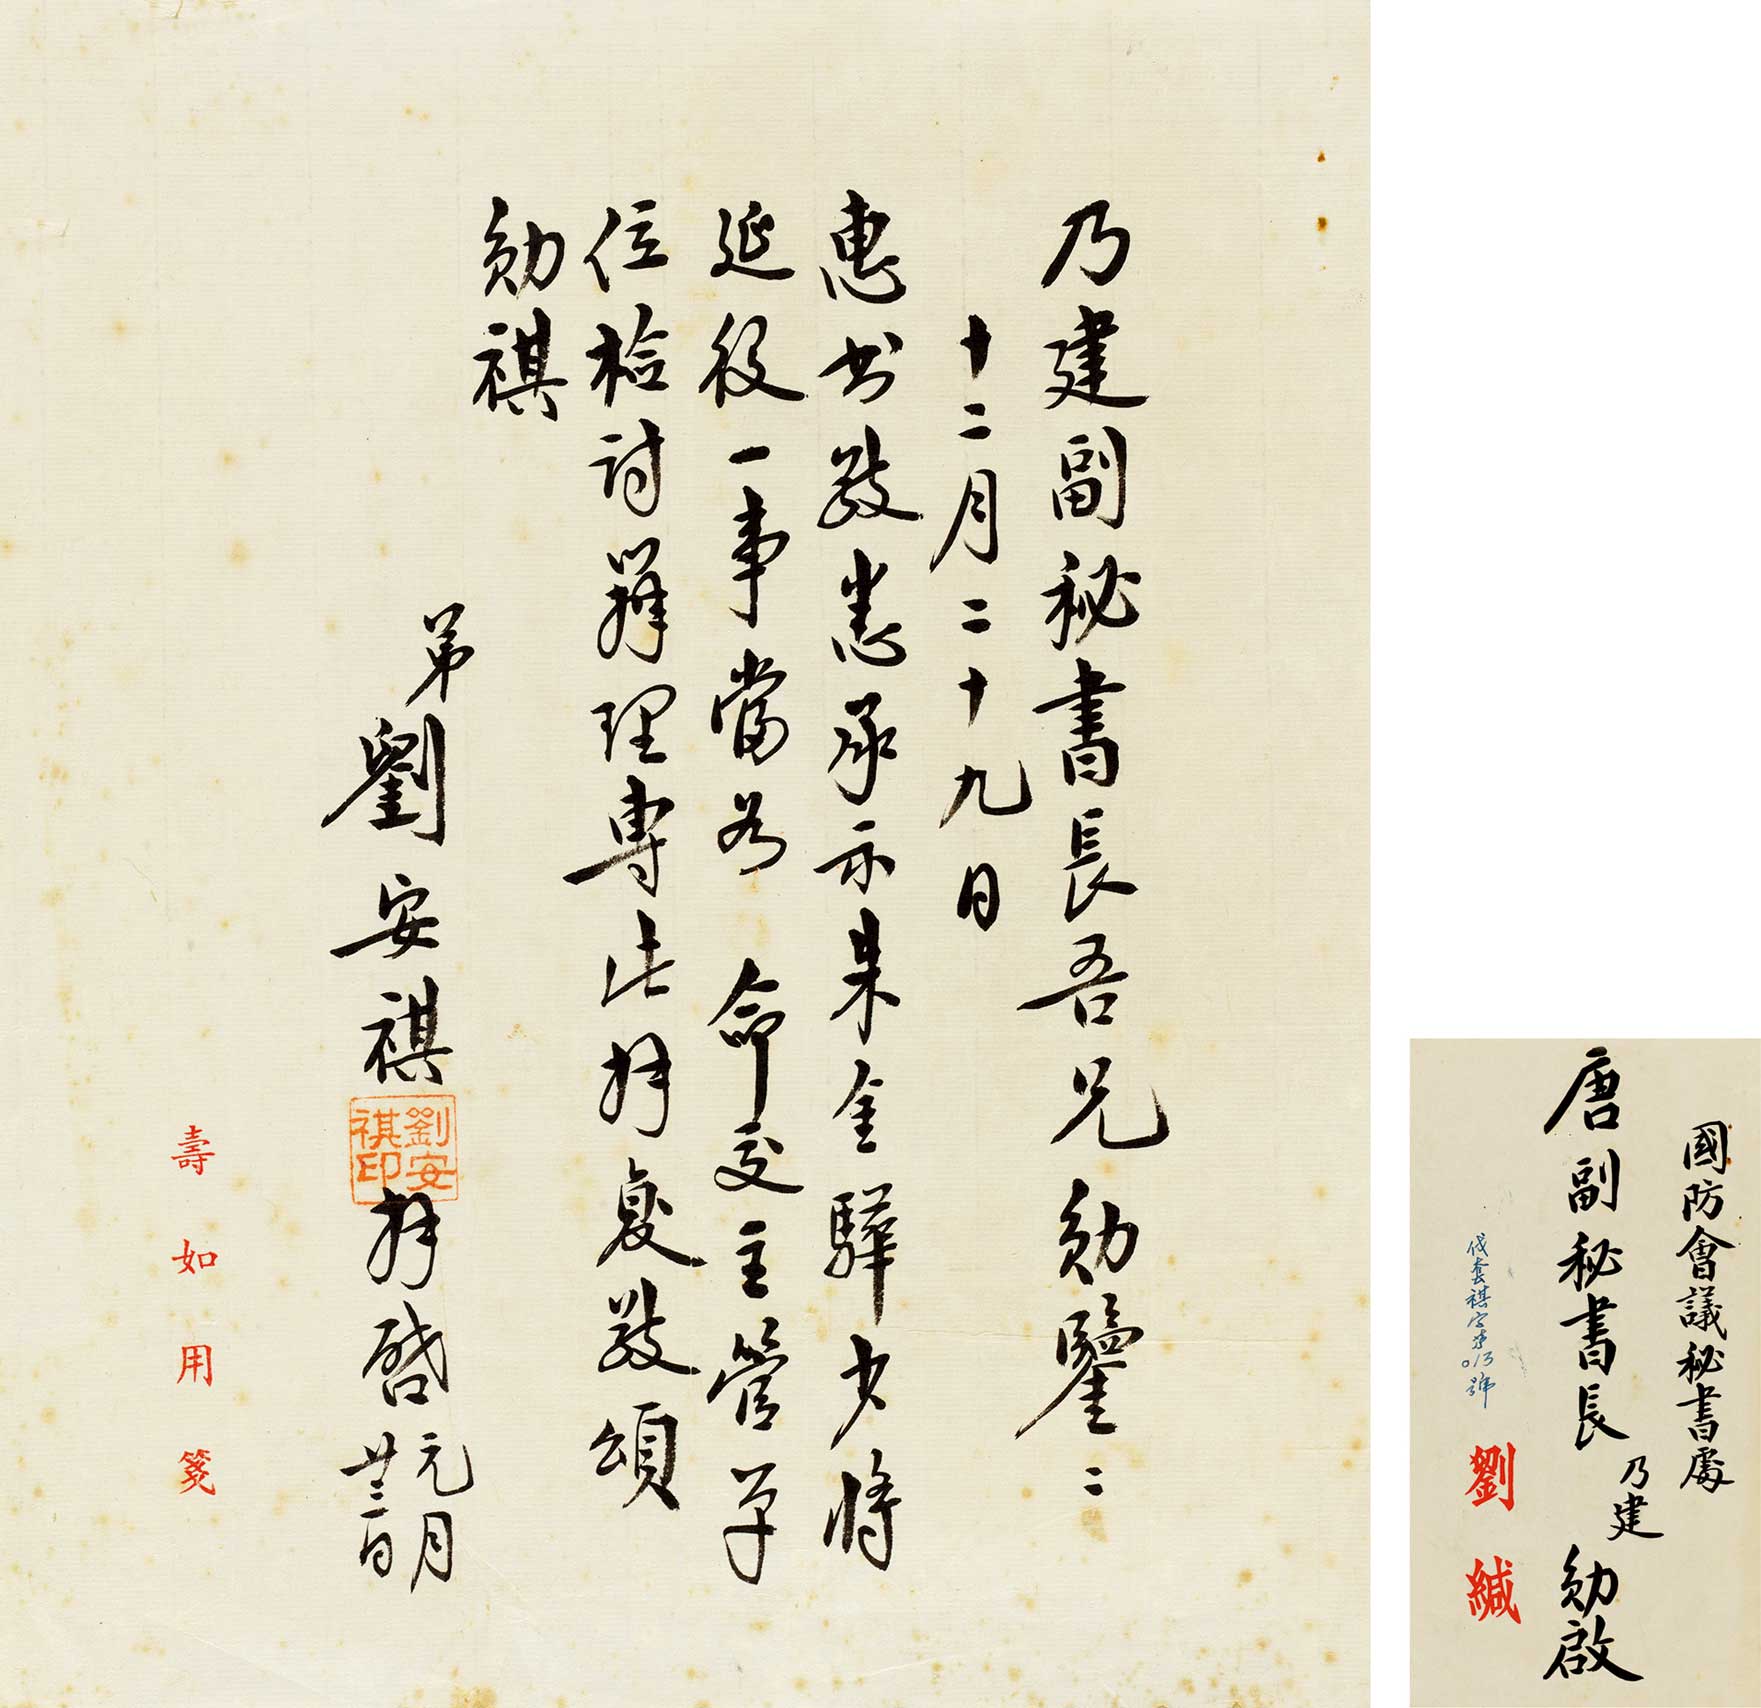 乃建副秘書長吾兄勛鑒二
十二月二十九日
惠書敬悉承示朱金驊少將
延役一事當為 命交主管單
位檢討辦理專此拜復敬頌
勛祺
弟劉安祺拜啓元月
廿三日
劉安祺印
壽如用箋
國防會議秘書處
唐副秘書長乃建勛啟
劉緘